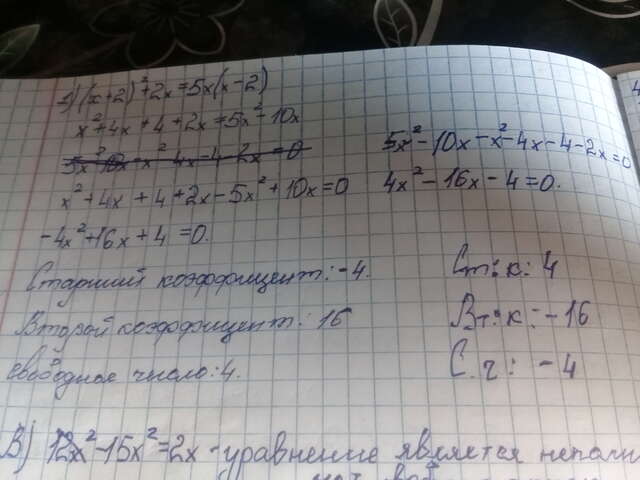 1) (x+2)²+2x=5x(x-2)
x²+4x+4+2x=5x²-10x
5x²-10x-x²-4x-4-2x=0
x²+4x+4+2x-5x²+10x=0
-4x²+16x+4=0.
Старший коэффициент: -4.
Второй коэффициент: 16
свободное число: 4.
5x²-10x-x²-4x-4-2x=0
4x²-16x-4=0.
Ст.к: 4
Вт.к: -16
С.ч: -4
В) 12x²-15x²=2x - уравнение является неполн
4